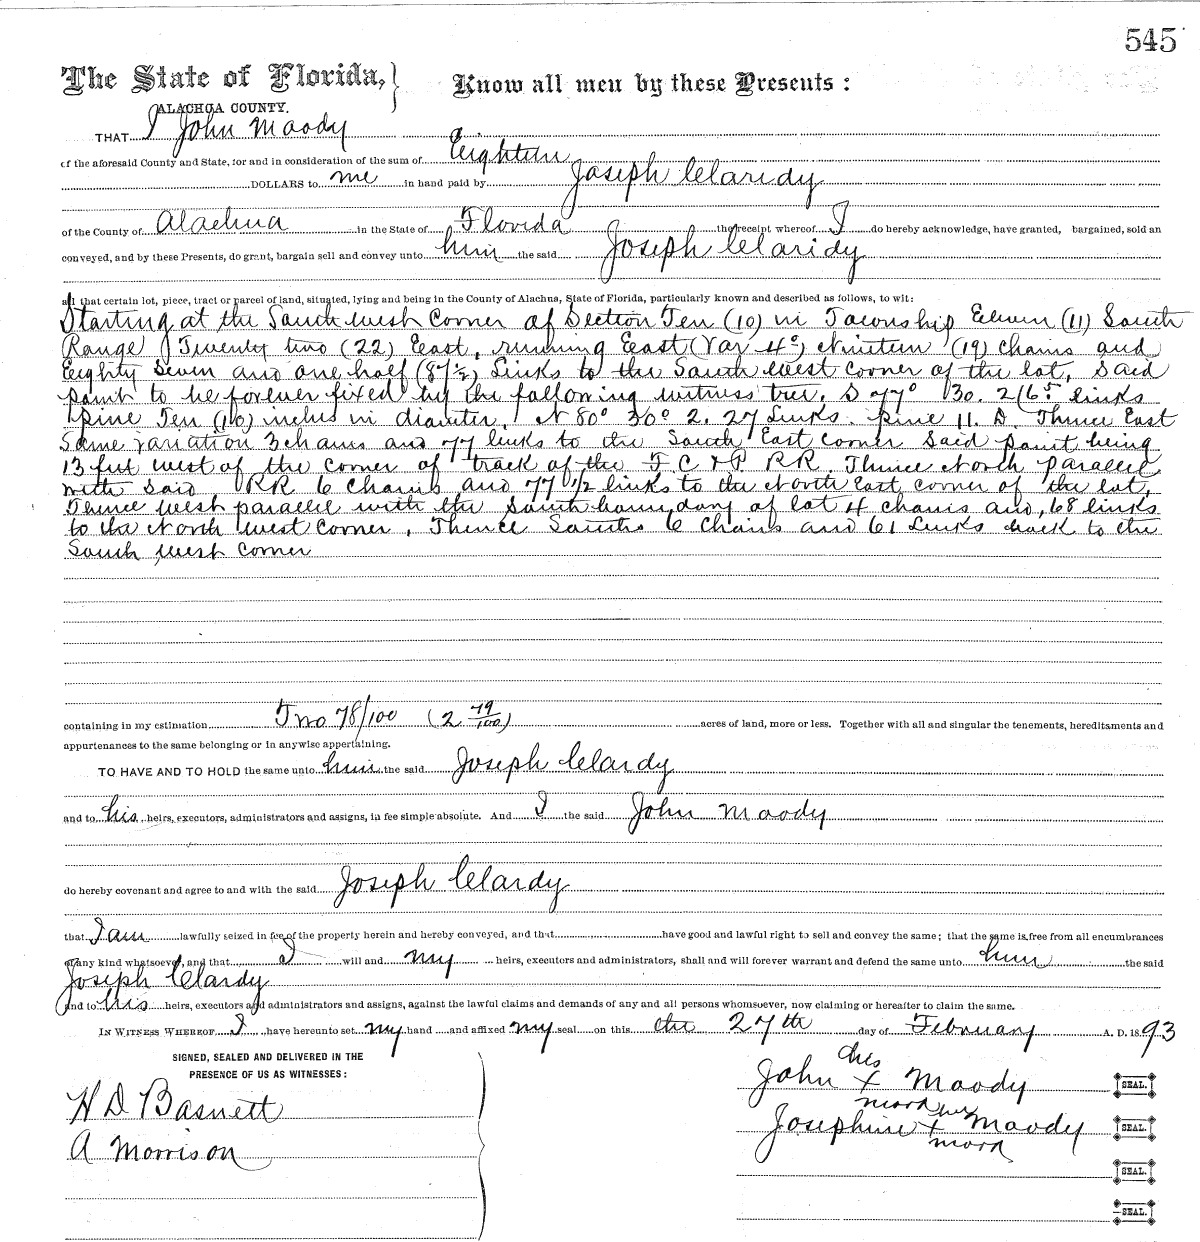 545
The State of Florida,} Know all men by these Presents:
ALACHUA COUNTY.
THAT I John Moody
of the aforesaid County and State, for and in consideration of the sum of Eighteen
DOLLARS to me in hand paid by Joseph Claridy
of the County of Alachua in the State of Florida the receipt whereof I do hereby acknowledge, have granted, bargained, sold an
conveyed, and by these Presents, do grant, bargain sell and convey unto him the said Joseph Claridy
all that certain lot, piece, tract or parcel of land, situated, lying and being in the County of Alachua, State of Florida, particularly known and described as follows, to wit:
Starting at the South west Corner of Section Ten (10) in Township Eleven (11) South
Range Twenty two (22) East, running East (Var 4°) Nineteen (19) chains and
Eighty Seven and one half (87½) Links to the South west corner of the lot, Said
point to be forever fixed by the following witness tree, S 77° 30. 2165 links
pine Ten (10) inches in diameter. N 80° 30° 2. 27 Links. pine 11. D. Thence East
Same variation 3 chains and 77 links to the South East corner Said point being
13 feet west of the corner of track of the F C & P. RR. Thence North parallel
with Said RR 6 Chains and 77 1/2 links to the North East corner of the lot,
Thence west parallel with the South boundary of lot 4 chains and 68 links
to the North west corner, Thence South 6 Chains and 61 Links back to the
South west corner
containing in my estimation Two 78/100 (2 79/100) acres of land, more or less. Together with all and singular the tenements, hereditaments and
appurtenances to the same belonging or in anywise appertaining.
TO HAVE AND TO HOLD the same unto him the said Joseph Clardy
and to his heirs, executors, administrators and assigns, in fee simple absolute. And I the said John Moody
do hereby covenant and agree to and with the said Joseph Clardy
that I am lawfully seized in fee of the property herein and hereby conveyed, and that have good and lawful right to sell and convey the same; that the same is free from all encumbrances
of any kind whatsoever, and that I will and my heirs, executors and administrators, shall and will forever warrant and defend the same unto him the said
Joseph Clardy
and to his heirs, executors and administrators and assigns, against the lawful claims and demands of any and all persons whomsoever, now claiming or hereafter to claim the same.
IN WITNESS WHEREOF I have hereunto set my hand and affixed my seal on this the 27th day of February A. D. 1893
SIGNED, SEALED AND DELIVERED IN THE
PRESENCE OF US AS WITNESSES:
H D Basnett
A Morrison
his
John x Moody SEAL.
mark her
Josephine x Moody SEAL.
mark
SEAL.
SEAL.